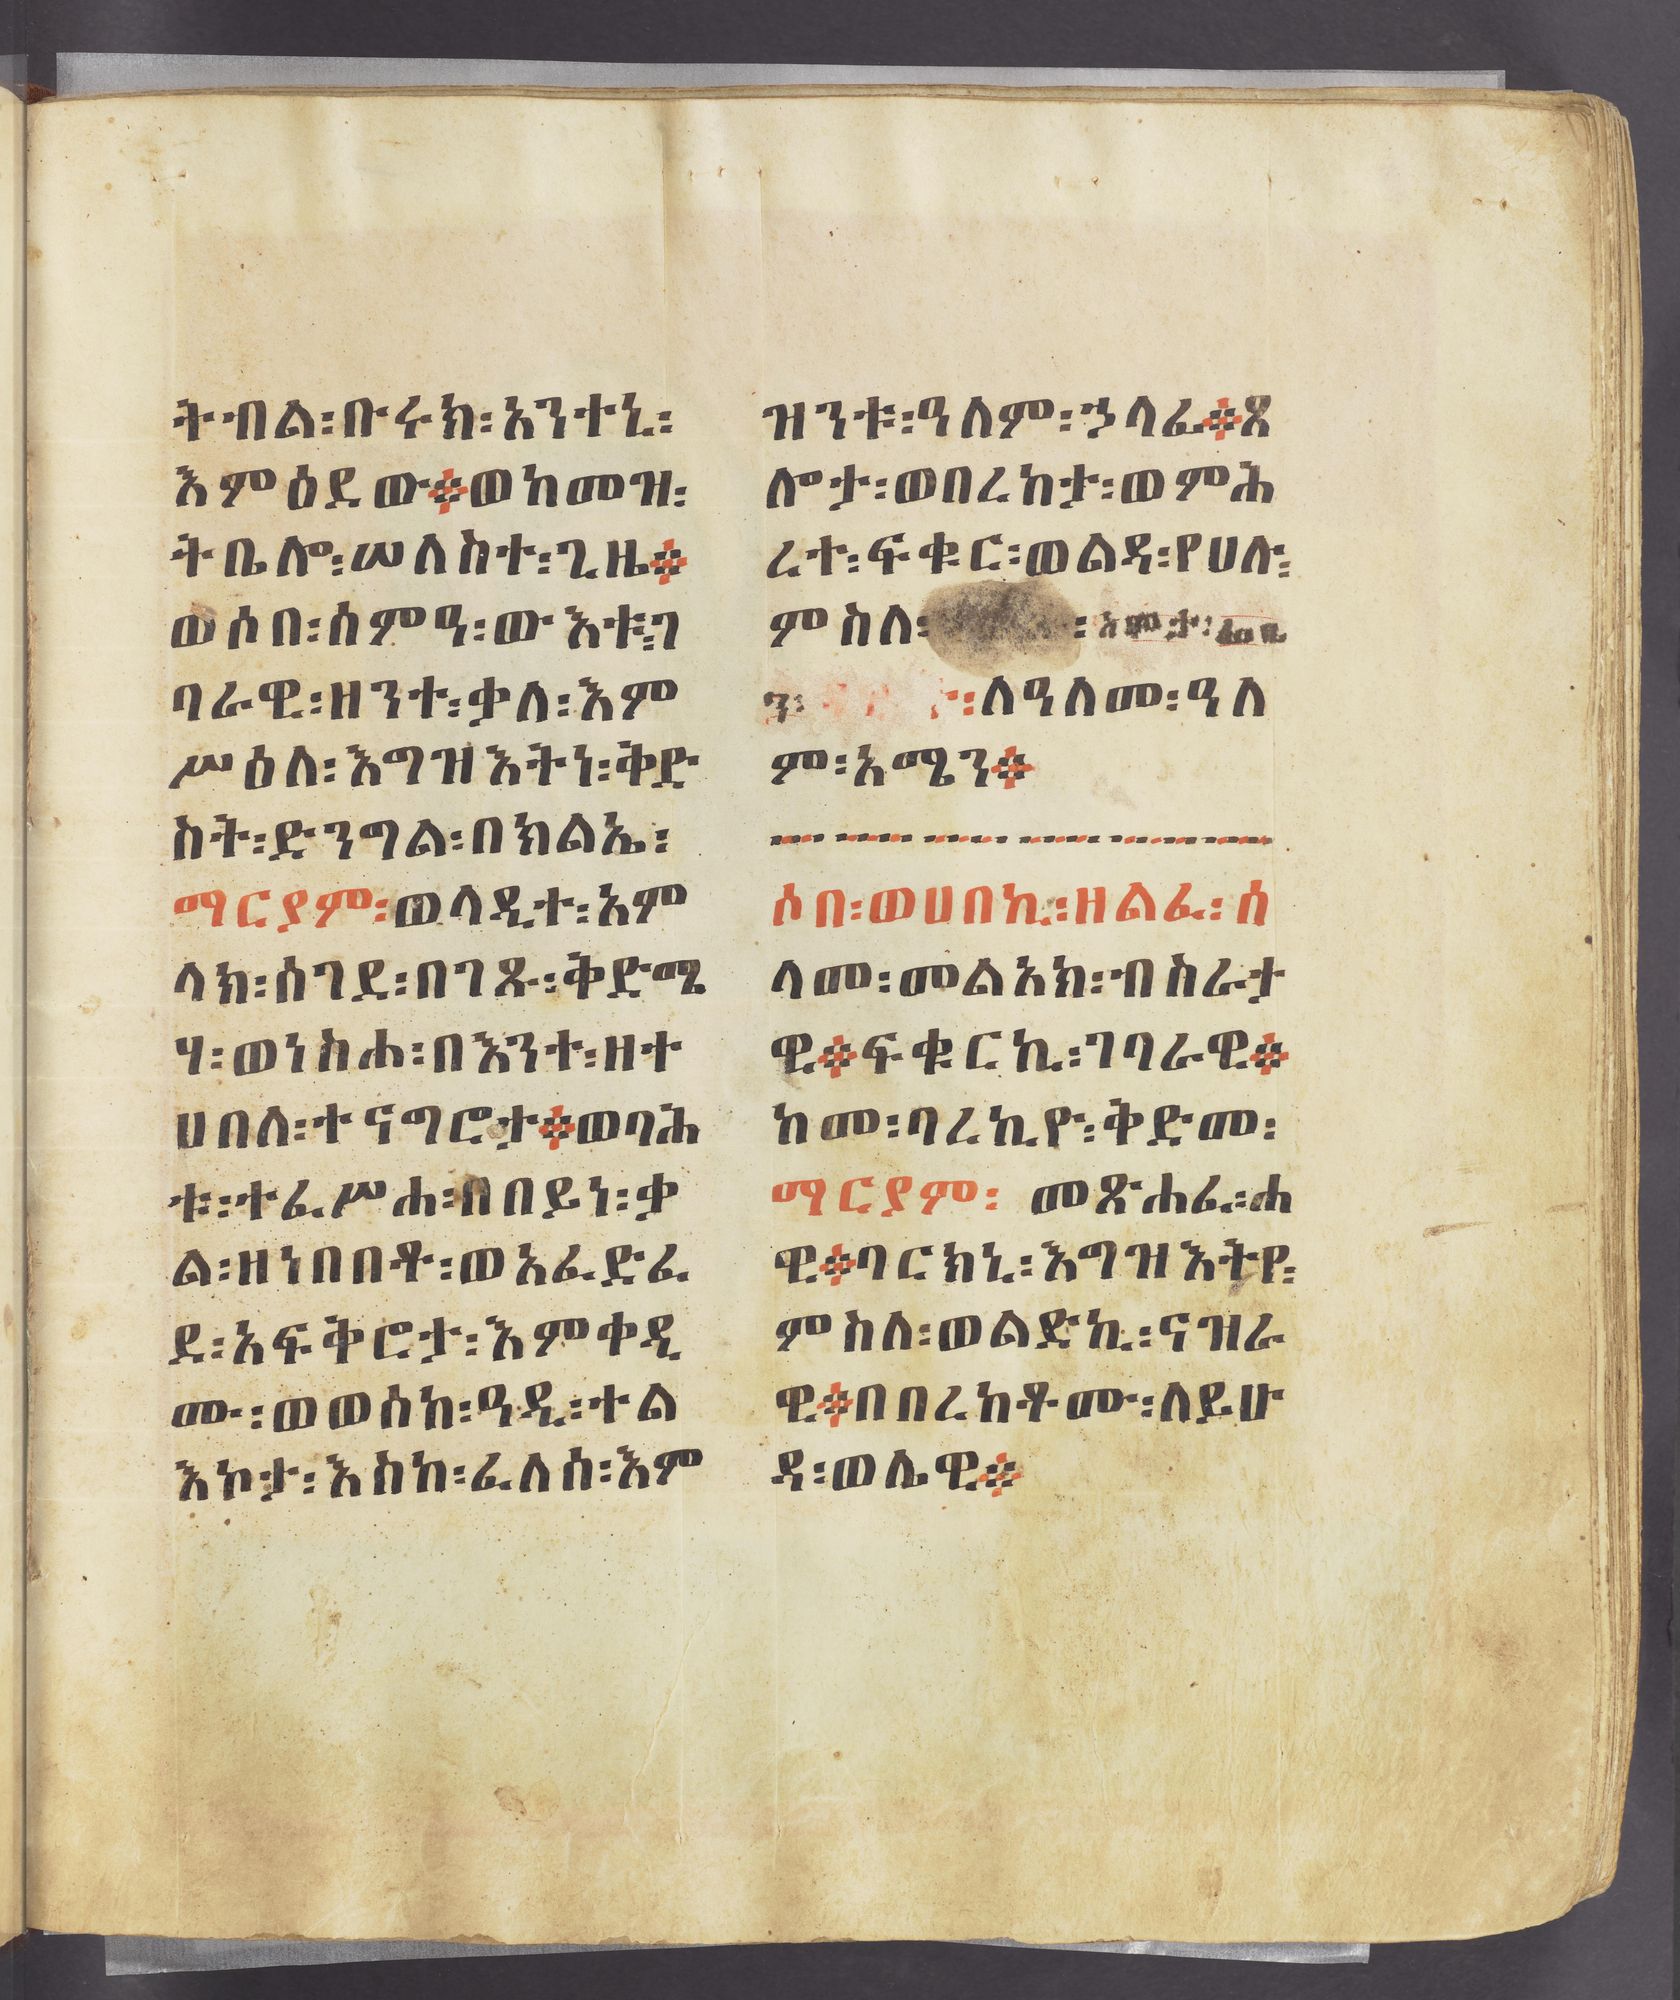 ትብል፡ቡሩክ፡አንተኒ፡
እምዕደው፨ወከመዝ፡
ትቤሎ፡ሠለስተ፡ጊዜ፨
ወሶበ፡ሰምዓ፡ውእቱ፡ገ
ባራዊ፡ዘንተ፡ቃለ፡እም
ሥዕለ፡እግዝእትነ፡ቅድ
ስት፡ድንግል፡በክልኤ፡
ማርያም፡ወላዲተ፡አም
ላክ፡ሰገደ፡በገጹ፡ቅድሜ
ሃ፡ወነስሐ፡በእንተ፡ዘተ
ሀበለ፡ተናግሮታ፨ወባሕ
ቱ፡ተፈሥሐ፡በበይነ፡ቃ
ል፡ዘነበበቶ፡ወአፈድፈ
ደ፡አፍቅሮታ፡እምቀዲ
ሙ፡ወወሰከ፡ዓዲ፡ተል
እኮታ፡እስከ፡ፈለሰ፡እም
ዝንቱ፡ዓለም፡ኃላፊ፨ጸ
ሎታ፡ወበረከታ፡ወምሕ
ረተ፡ፍቁር፡ወልዳ፡የሀሉ፡
ምስለ፡ ፡አመታ፡
ን፡ ፡ለዓለመ፡ዓለ
ም፡አሜን፨
ሶበ፡ወሀበኪ፡ዘልፈ፡ሰ
ላመ፡መልአክ፡ብስራታ
ዊ፨ፍቁርኪ፡ገባራዊ፨
ከመ፡ባረኪዮ፡ቅድመ፡
ማርያም፡ መጽሐፊ፡ሐ
ዊ፨ባርክኒ፡እግዝእትየ፡
ምስለ፡ወልድኪ፡ናዝራ
ዊ፨በበረከቶሙ፡ለይሁ
ዳ፡ወሌዊ፨